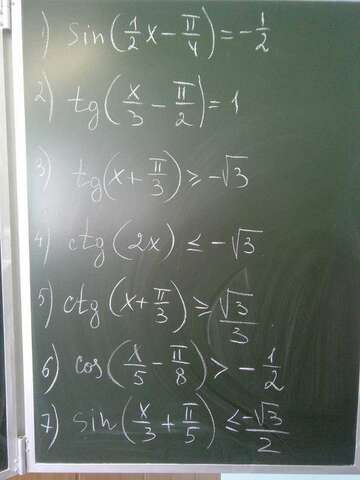 1) sin(1/2 x - π/4) = -1/2
2) tg(x/3 - π/2) = 1
3) tg(x + π/3) ≥ -√3
4) ctg(2x) ≤ -√3
5) ctg(x + π/3) ≥ √3/3
6) cos(x/5 - π/8) > -1/2
7) sin(x/3 + π/5) ≤ -√3/2